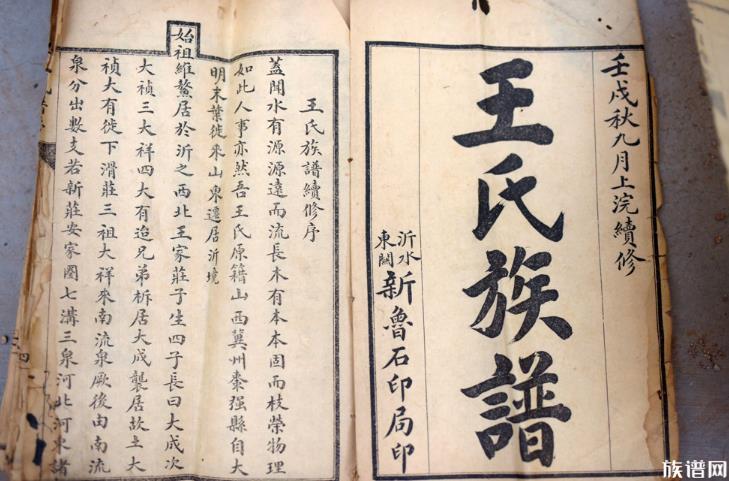 壬戌秋九月上浣續修
王氏族譜
沂水
東關
新魯石印局印
王氏族譜續修序
蓋聞水有源源遠而流長木有本本固而枝榮物理
如此人事亦然吾王氏原籍山西冀州棗强縣自大
明末葉徙來山東遷居沂境
始祖維鰲居於沂之西北王家莊子生四子長曰大成次
大禎三大祥四大有迨兄弟析居大成襲居故土大
禎大有徙下滑莊三祖大祥來南流泉厥後由南流
泉分出數支若新莊安家圈七溝三泉河北河東諸
族谱网